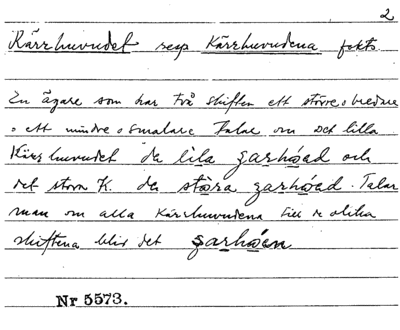 2
Kärrhuvudet resp Kärrhuvudena forts
En ägare som har två skiften ett större o bredare
o ett mindre o smalare talar om det lilla
Kärrhuvudet də lila ɡarhóad och
det stora K. də stòra ɡarhóad. Talar
man om alla Kärrhuvudena till de olika
skiftena blir det ɡarhóen
Nr 5573.